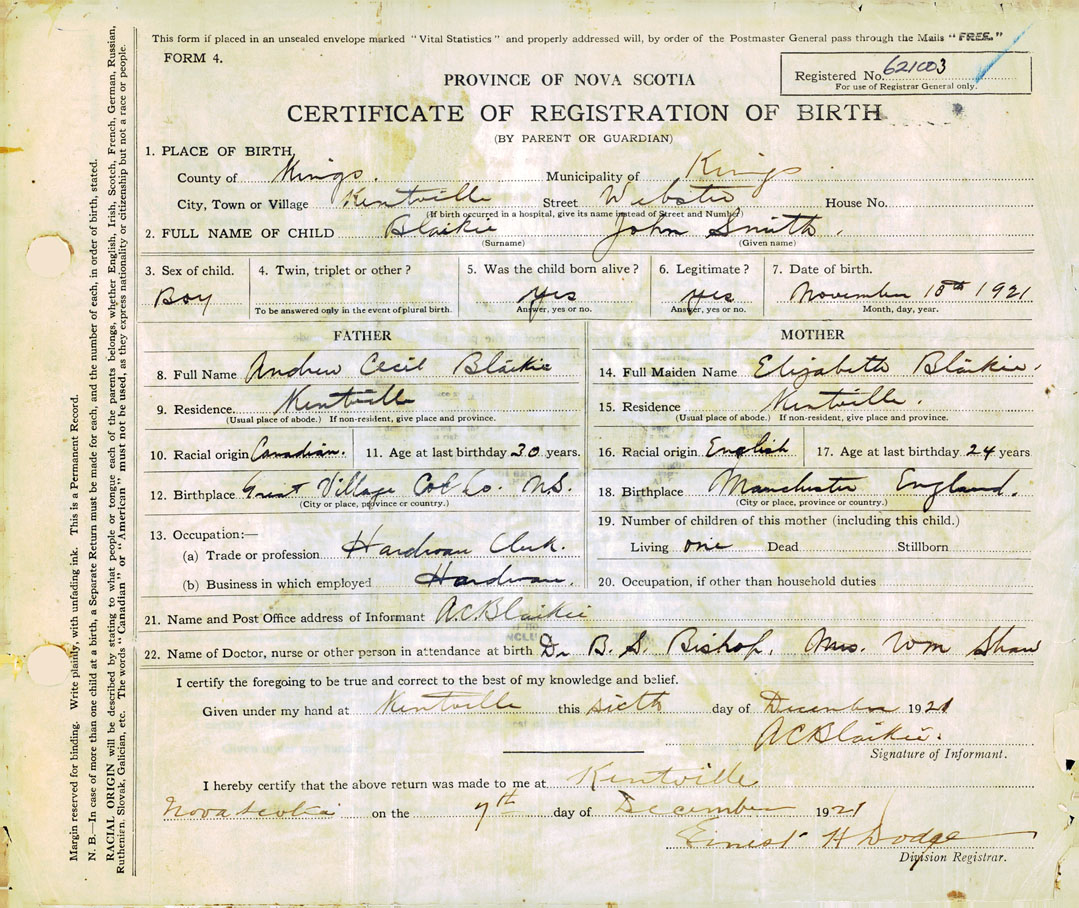 This form if placed in an unsealed envelope marked "Vital Statistics" and properly addressed will, by order of the Postmaster General pass through the Mails "FREE."
FORM 4.
Registered No. 621003
For use of Registrar General only.
PROVINCE OF NOVA SCOTIA
CERTIFICATE OF REGISTRATION OF BIRTH
(BY PARENT OR GUARDIAN)
1. PLACE OF BIRTH,
County of Kings. Municipality of Kings
City, Town or Village Kentville Street Webster House No.
(If birth occurred in a hospital, give its name instead of Street and Number)
2. FULL NAME OF CHILD Blaikie John Smith.
(Surname) (Given name)
3. Sex of child. 4. Twin, triplet or other? 5. Was the child born alive? 6. Legitimate? 7. Date of birth.
Boy Yes Yes November 10th 1921
To be answered only in the event of plural birth. Answer, yes or no. Answer, yes or no. Month, day, year.
FATHER MOTHER
8. Full Name Andrew Cecil Blaikie 14. Full Maiden Name Elizabeth Blaikie.
9. Residence Kentville 15. Residence Kentville.
(Usual place of abode.) If non-resident, give place and province. (Usual place of abode.) If non-resident, give place and province.
10. Racial origin Canadian. 11. Age at last birthday 30 years. 16. Racial origin English 17. Age at last birthday 24 years
12. Birthplace Great Village Col Co. N.S. 18. Birthplace Manchester England.
(City or place, province or country.) (City or place, province or country.)
19. Number of children of this mother (including this child.)
13. Occupation:—
(a) Trade or profession Hardware Clerk. Living one Dead Stillborn
(b) Business in which employed Hardware. 20. Occupation, if other than household duties
21. Name and Post Office address of Informant A.C. Blaikie
22. Name of Doctor, nurse or other person in attendance at birth Dr B. S. Bishop. Mrs. Wm Shaw
I certify the foregoing to be true and correct to the best of my knowledge and belief.
Given under my hand at Kentville this sixth day of December 1921
A C Blaikie.
Signature of Informant.
I hereby certify that the above return was made to me at Kentville
Nova Scotia on the 7th day of December 1921
Ernest H Dodge
Division Registrar.
Margin reserved for binding. Write plainly, with unfading ink. This is a Permanent Record.
N. B.—In case of more than one child at a birth, a Separate Return must be made for each, and the number of each, in order of birth, stated.
RACIAL ORIGIN will be described by stating to what people or tongue each of the parents belongs, whether English, Irish, Scotch, French, German, Russian,
Ruthenian, Slovak, Galician, etc. The words "Canadian" or "American" must not be used, as they express nationality or citizenship but not a race or people.